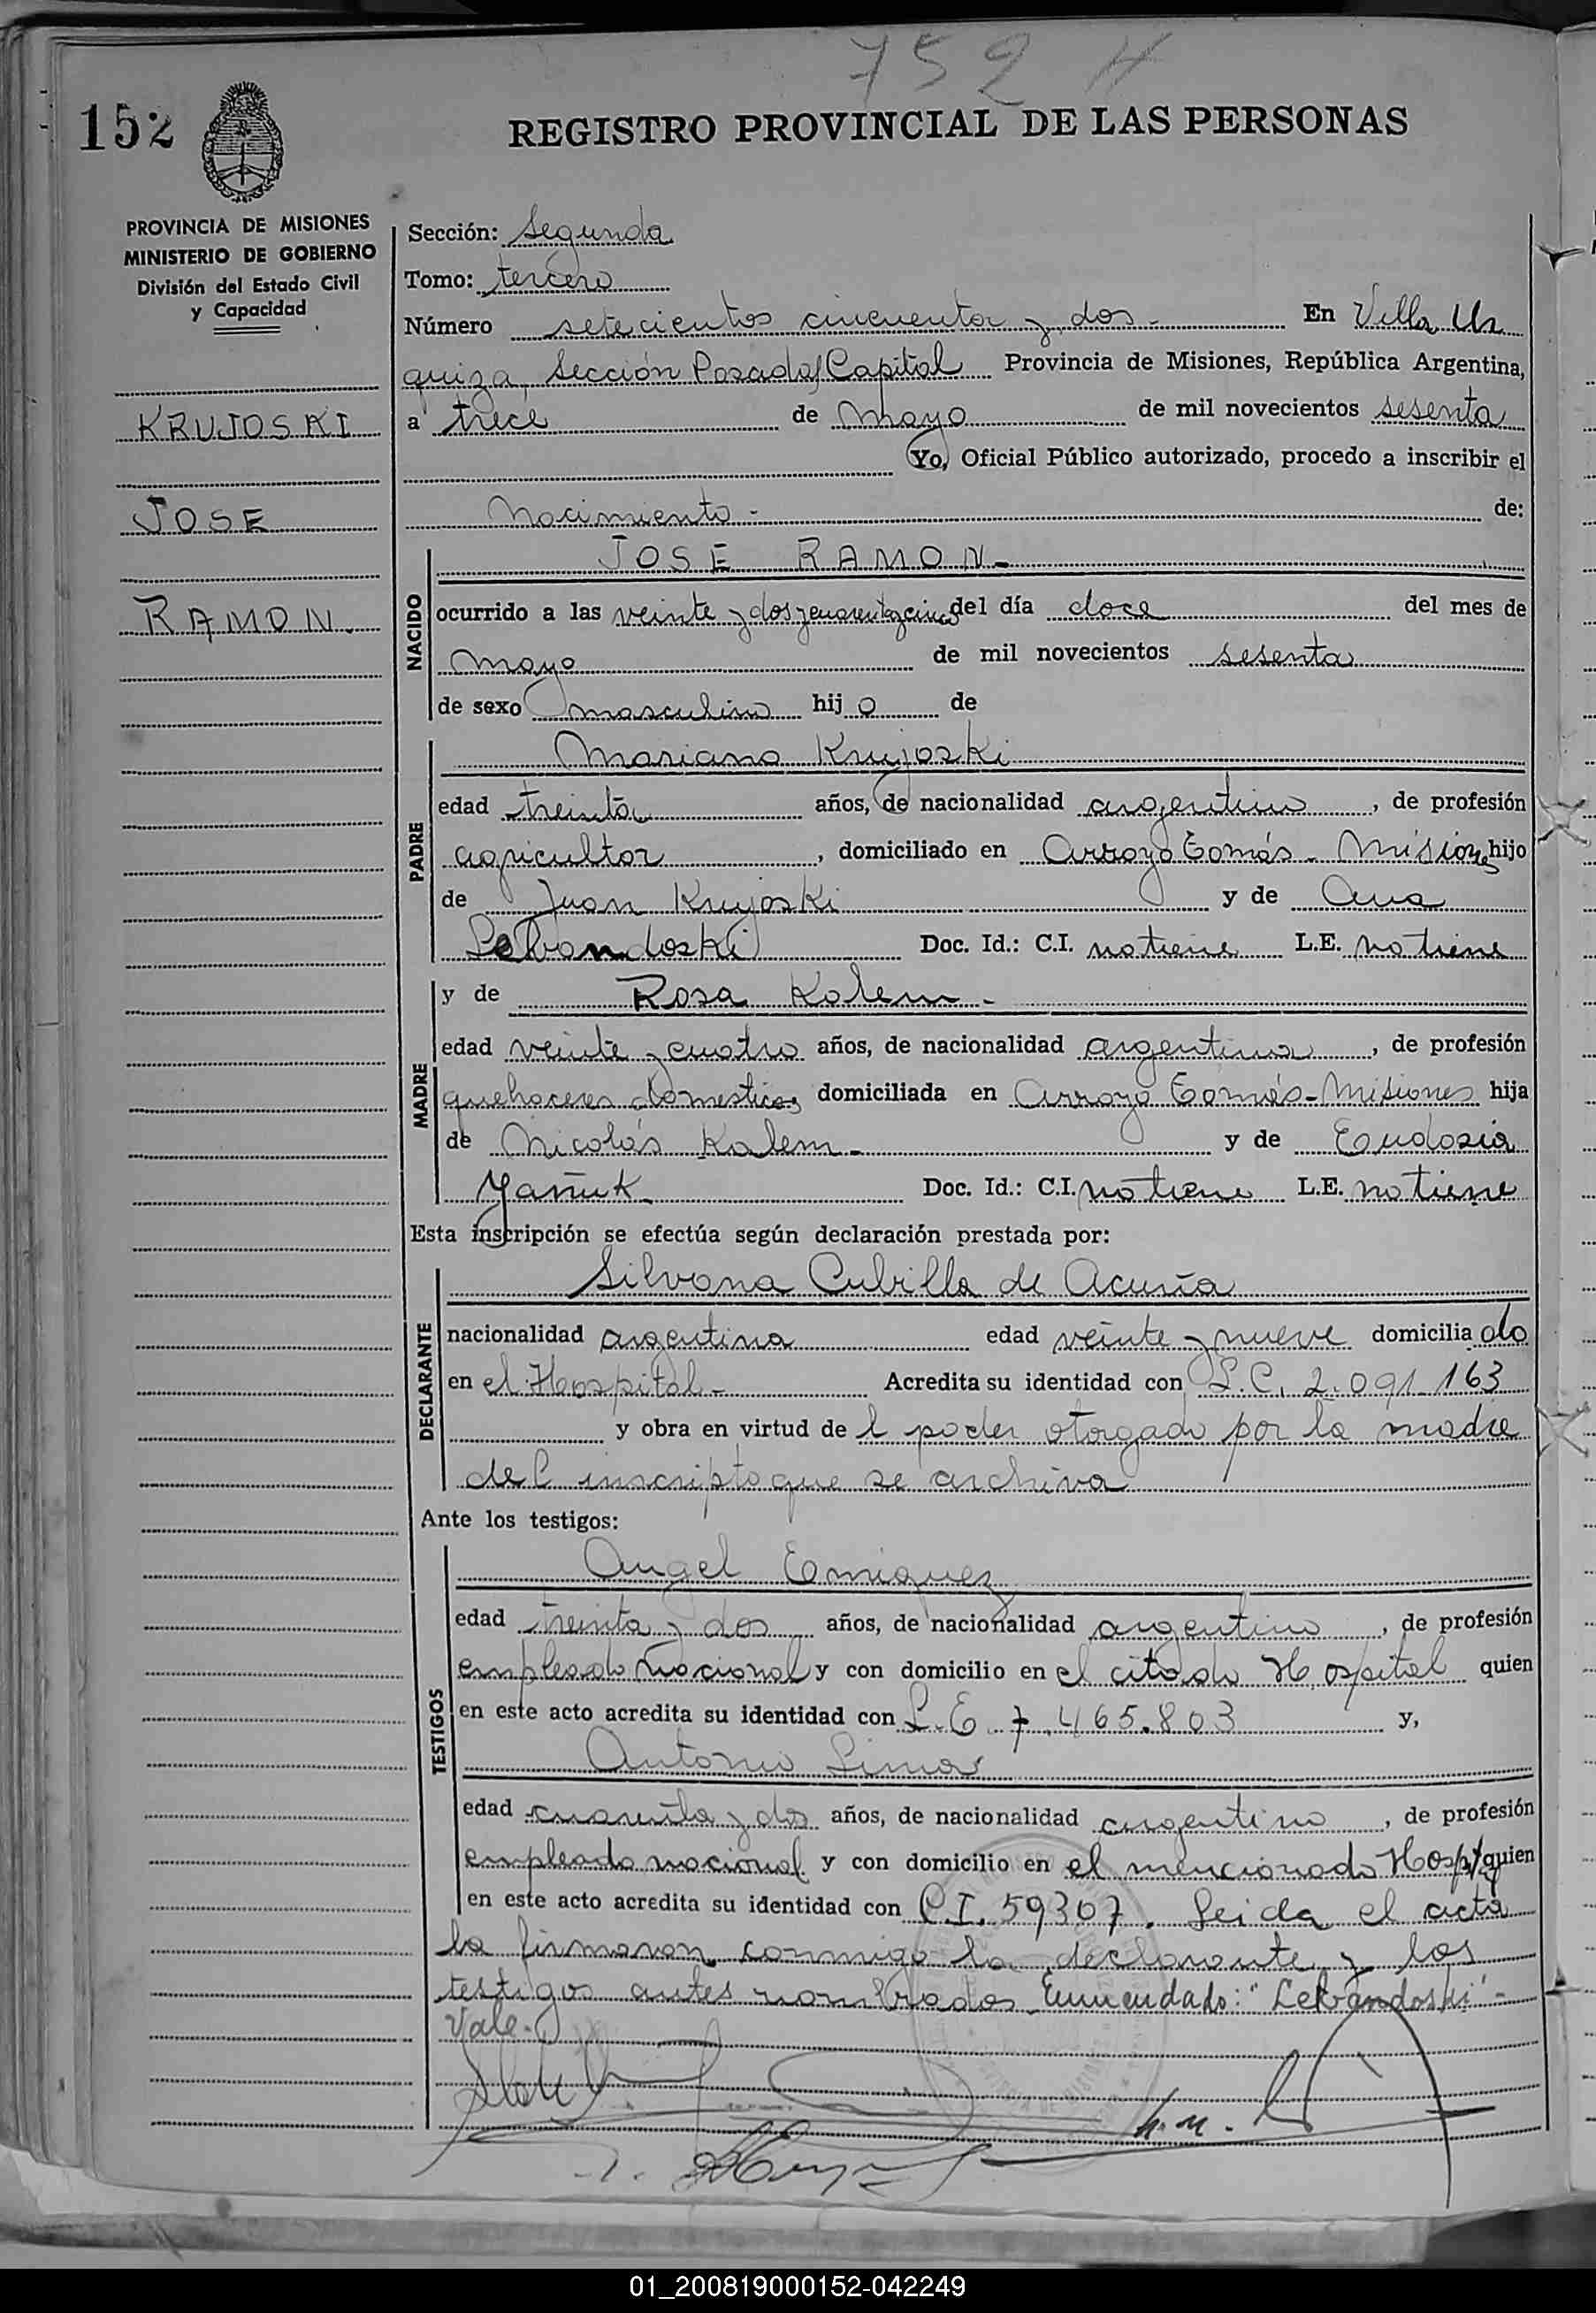 752 H
152
REGISTRO PROVINCIAL DE LAS PERSONAS
PROVINCIA DE MISIONES
MINISTERIO DE GOBIERNO
División del Estado Civil
y Capacidad
KRUJOSKI
JOSE
RAMON.
Sección: Segunda
Tomo: tercero
Número setecientos cincuenta y dos - En Villa Ur
quiza, Sección Posadas Capital Provincia de Misiones, República Argentina,
a trece de mayo de mil novecientos sesenta
Yo, Oficial Público autorizado, procedo a inscribir el
Nacimiento - de:
NACIDO
JOSE RAMON -
ocurrido a las veinte y dos y cuarenta y cinco del día doce del mes de
mayo de mil novecientos sesenta
de sexo masculino hij o de
PADRE
Mariano Krujoski
edad treinta años, de nacionalidad argentino, de profesión
agricultor, domiciliado en Arroyo Tomás - Misiones hijo
de Juan Krujoski y de Ana
Lebandoski Doc. Id.: C.I. no tiene L.E. no tiene
MADRE
y de Rosa Kalem -
edad veinte y cuatro años, de nacionalidad argentina, de profesión
quehaceres domesticos domiciliada en Arroyo Tomás - Misiones hija
de Nicolás Kalem - y de Eudosia
Yañuk Doc. Id.: C.I. no tiene L.E. no tiene
Esta inscripción se efectúa según declaración prestada por:
DECLARANTE
Silvana Cubilla de Acuña
nacionalidad argentina edad veinte y nueve domicilia do
en el Hospital - Acredita su identidad con L.C. 2.091.163
y obra en virtud de l poder otorgado por la madre
del inscripto que se archiva
Ante los testigos:
TESTIGOS
Angel Enriquez
edad treinta y dos años, de nacionalidad argentino, de profesión
empleado nacional y con domicilio en el citado Hospital quien
en este acto acredita su identidad con L.E. 7.465.803 y,
Antonio Lima
edad cuarenta y dos años, de nacionalidad argentino, de profesión
empleado nacional y con domicilio en el mencionado Hospital quien
en este acto acredita su identidad con C.I. 59307. Leida el acta
la firmaron conmigo la declarante y los
testigos antes nombrados Enmendado: "Lebandoski" -
Vale.-
01_200819000152-042249